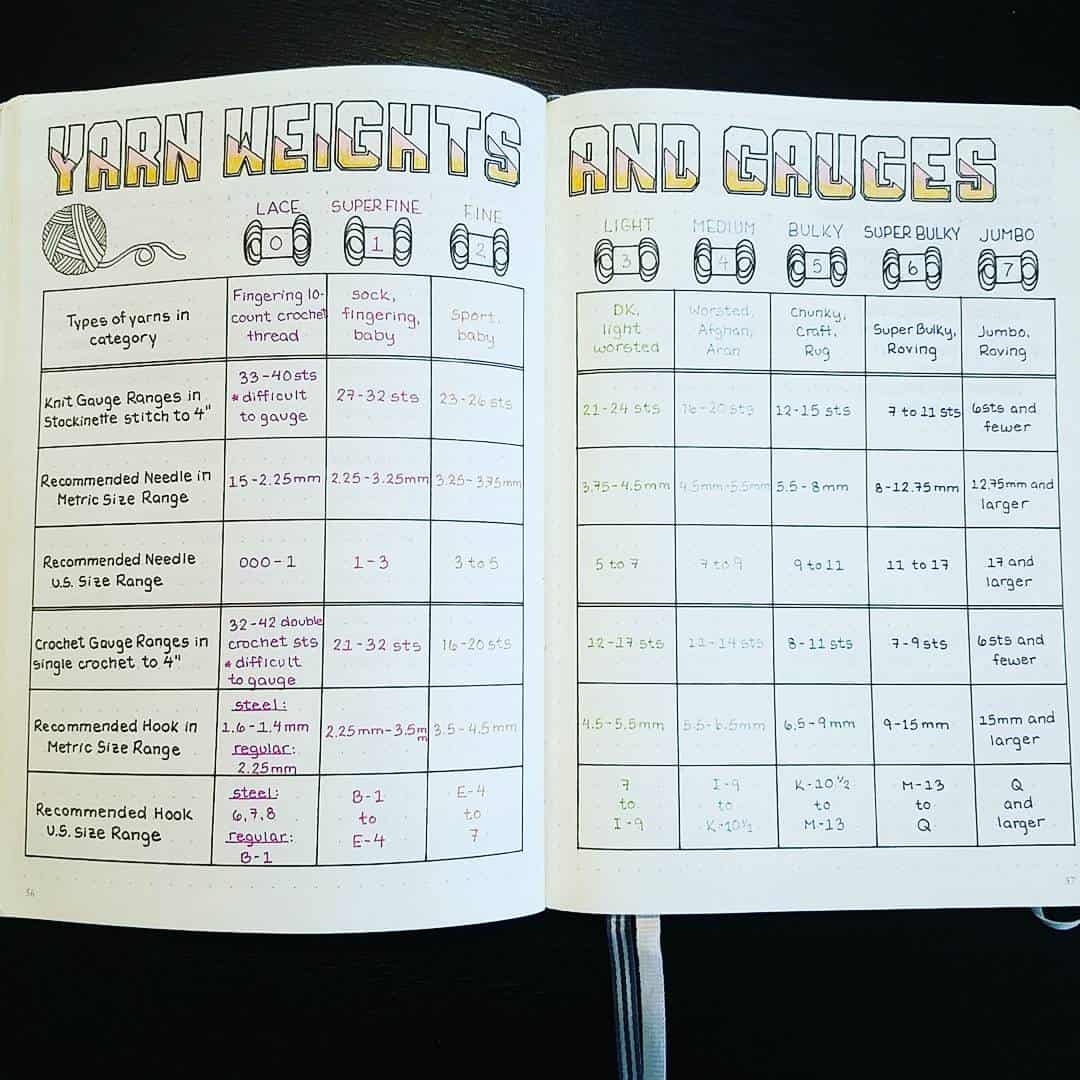 YARN WEIGHTS
AND GAUGES
LACE
0
SUPER FINE
1
FINE
2
LIGHT
3
MEDIUM
4
BULKY
5
SUPER BULKY
6
JUMBO
7
Types of yarns in
category
Fingering 10-
count crochet
thread
sock,
fingering,
baby
Sport,
baby
DK,
light
worsted
Worsted,
Afghan,
Aran
Chunky,
Craft,
Rug
Super Bulky,
Roving
Jumbo,
Roving
Knit Gauge Ranges in
Stockinette stitch to 4"
33-40 sts
* difficult
to gauge
27-32 sts
23-26 sts
21-24 sts
16-20 sts
12-15 sts
7 to 11 sts
6sts and
fewer
Recommended Needle in
Metric Size Range
1.5-2.25mm
2.25-3.25mm
3.25-3.75mm
3.75-4.5mm
4.5mm-5.5mm
5.5-8mm
8-12.75mm
12.75mm and
larger
Recommended Needle
U.S. Size Range
000-1
1-3
3 to 5
5 to 7
7 to 9
9 to 11
11 to 17
17 and
larger
Crochet Gauge Ranges in
single crochet to 4"
32-42 double
crochet sts
* difficult
to gauge
21-32 sts
16-20 sts
12-17 sts
11-14 sts
8-11 sts
7-9 sts
6sts and
fewer
Recommended Hook in
Metric Size Range
steel:
1.6-1.4mm
regular:
2.25mm
2.25mm-3.5mm
3.5-4.5mm
4.5-5.5mm
5.5-6.5mm
6.5-9mm
9-15mm
15mm and
larger
Recommended Hook
U.S. Size Range
steel:
6,7,8
regular:
B-1
B-1
to
E-4
E-4
to
7
7
to
I-9
I-9
to
K-10½
K-10½
to
M-13
M-13
to
Q
Q
and
larger
56
57